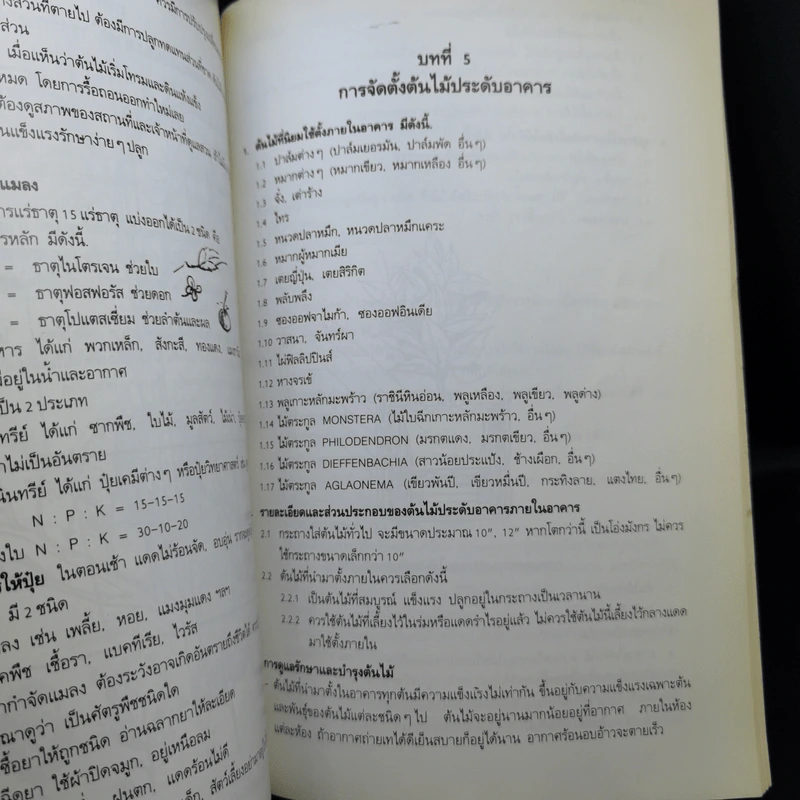 างส่วนที่ตายไป ต้องมีการปลูกทดแทนส่วนที่
ส่วน
เมื่อเห็นว่าต้นไม้เริ่มโทรมและดินแห้งแข็ง
หมด โดยการรื้อถอนออกทำใหม่เลย
ต้องดูสภาพของสถานที่และเจ้าหน้าที่ดูแล
นแข็งแรงรักษาง่ายๆ ปลูก
แมลง
การแร่ธาตุ 15 แร่ธาตุ แบ่งออกได้เป็น 2 ชนิด คือ
รหลัก มีดังนี้.
= ธาตุไนโตรเจน ช่วยใบ
= ธาตุฟอสฟอรัส ช่วยดอก
= ธาตุโปแตสเซี่ยม ช่วยลำต้นและผล
หาร ได้แก่ พวกเหล็ก, สังกะสี, ทองแดง,
อยู่ในน้ำและอากาศ
เป็น 2 ประเภท
ทรีย์ ได้แก่ ซากพืช, ใบไม้, มูลสัตว์,
าไม่เป็นอันตราย
นินทรีย์ ได้แก่ ปุ๋ยเคมีต่างๆ หรือปุ๋ยวิทยาศาสตร์
N : P : K = 15-15-15
งใบ N : P : K = 30-10-20
รให้ปุ๋ย ในตอนเช้า แดดไม่ร้อนจัด, อบอุ่น
มี 2 ชนิด
ลง เช่น เพลี้ย, หอย, แมงมุมแดง ฯลฯ
คพืช เชื้อรา, แบคทีเรีย, ไวรัส
ากำจัดแมลง ต้องระวังอาจเกิดอันตรายถึงชีวิตได้
ณาดูว่า เป็นศัตรูพืชชนิดใด
ซื้อยาให้ถูกชนิด อ่านฉลากยาให้ละเอียด
ฉีดยา ใช้ผ้าปิดจมูก, อยู่เหนือลม
ฝนตก, แดดร้อนไม่ดี
สัตว์เลี้ยงอย่า
บทที่ 5
การจัดตั้งต้นไม้ประดับอาคาร
1. ต้นไม้ที่นิยมใช้ตั้งภายในอาคาร มีดังนี้.
1.1 ปาล์มต่างๆ (ปาล์มเยอรมัน, ปาล์มพัด อื่นๆ)
1.2 หมากต่างๆ (หมากเขียว, หมากเหลือง อื่นๆ)
1.3 จั๋ง, เต่าร้าง
1.4 ไทร
1.5 หนวดปลาหมึก, หนวดปลาหมึกแคระ
1.6 หมากผู้หมากเมีย
1.7 เตยญี่ปุ่น, เตยสิริกิต
1.8 พลับพลึง
1.9 ซองออฟจาไมก้า, ซองออฟอินเดีย
1.10 วาสนา, จันทร์ผา
1.11 ไผ่ฟิลลิปปินส์
1.12 หางจรเข้
1.13 พลูเกาะหลักมะพร้าว (ราชินีหินอ่อน, พลูเหลือง, พลูเขียว, พลูด่าง)
1.14 ไม้ตระกูล MONSTERA (ไม้ใบฉีกเกาะหลักมะพร้าว, อื่นๆ)
1.15 ไม้ตระกูล PHILODENDRON (มรกตแดง, มรกตเขียว, อื่นๆ)
1.16 ไม้ตระกูล DIEFFENBACHIA (สาวน้อยประแป้ง, ช้างเผือก, อื่นๆ)
1.17 ไม้ตระกูล AGLAONEMA (เขียวพันปี, เขียวหมื่นปี, กระทิงลาย, แตงไทย, อื่นๆ)
รายละเอียดและส่วนประกอบของต้นไม้ประดับอาคารภายในอาคาร
2.1 กระถางใส่ต้นไม้ทั่วไป จะมีขนาดประมาณ 10", 12" หากโตกว่านี้ เป็นโอ่งมังกร ไม่ควร
ใช้กระถางขนาดเล็กกว่า 10"
2.2 ต้นไม้ที่นำมาตั้งภายในควรเลือกดังนี้
2.2.1 เป็นต้นไม้ที่สมบูรณ์ แข็งแรง ปลูกอยู่ในกระถางเป็นเวลานาน
2.2.2 ควรใช้ต้นไม้ที่เลี้ยงไว้ในร่มหรือแดดรำไรอยู่แล้ว ไม่ควรใช้ต้นไม้นี้เลี้ยงไว้กลางแดด
มาใช้ตั้งภายใน
การดูแลรักษาและบำรุงต้นไม้
- ต้นไม้ที่นำมาตั้งในอาคารทุกต้นมีความแข็งแรงไม่เท่ากัน ขึ้นอยู่กับความแข็งแรงเฉพาะต้น
และพันธุ์ของต้นไม้แต่ละชนิดๆ ไป ต้นไม้จะอยู่นานมากน้อยอยู่ที่อากาศ ภายในห้อง
แต่ละห้อง ถ้าอากาศถ่ายเทได้ดีเย็นสบายก็อยู่ได้นาน อากาศร้อนอบอ้าวจะตายเร็ว